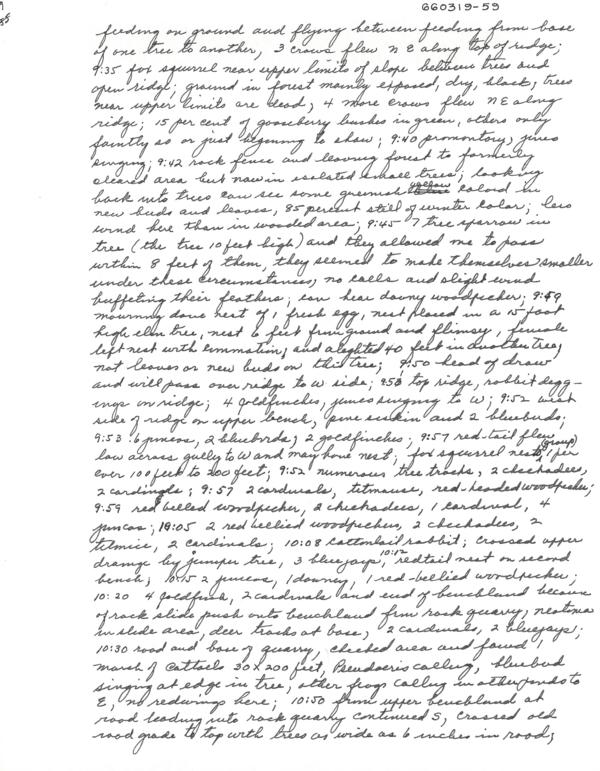 660319-59
feeding on ground and flying between feeding from base
of one tree to another, 3 crows flew N E along top of ridge;
9:35 fox squirrel near upper limits of slope between trees and
open ridge; ground in forest mainly exposed, dry, black, trees
near upper limits are dead; 4 more crows flew N E along
ridge; 15 per cent of gooseberry bushes in green, others only
faintly so or just beginning to show; 9:40 promontory, juncos
singing; 9:42 rock fence and leaving forest to formerly
cleared area but now in isolated small trees; looking
back into trees can see some greenish yellow colord in
new buds and leaves, 85 percent still of winter color; less
wind here than in wooded area; 9:45 7 tree sparrow in
tree (the tree 10 feet high) and they allowed me to pass
within 8 feet of them, they seemed to make themselves smaller
under these circumstances, no calls and slight wind
buffeting their feathers; can hear downy woodpecker; 9:49
mourning dove nest of 1 fresh egg, nest placed in a 15 foot
high elm tree, nest 6 feet from ground and flimsy, female
left nest with emmotion, and alighted 40 feet in another tree,
not leaves or new buds on this tree; 9:50 head of draw
and will pass over ridge to W side; 9:50 top ridge, rabbit dropp-
ings on ridge; 4 goldfinches, juncos singing to W; 9:52 west
side of ridge on upper bench, pine siskin and 2 bluebirds;
9:53 6 juncos, 2 bluebirds, 2 goldfinches; 9:57 red-tail flew
low across gulley to W and may have nest; fox squirrel nests (group) 1 per
ever 100 feet to 200 feet; 9:52 numerous tree tracks, 2 chickadees,
2 cardinals; 9:57 2 cardinals, titmouse, red-headed woodpecker;
9:59 red bellied woodpecker, 2 chickadees, 1 cardinal, 4
juncos; 10:05 2 red bellied woodpeckers, 2 chickadees, 2
titmice, 2 cardinals; 10:08 cottontail rabbit; crossed upper
drainge by juniper tree, 3 bluejays, 10:12 redtail nest on second
bench; 10:15 2 juncos, 1 downey, 1 red-bellied woodpecker;
10:20 4 goldfinch, 2 cardinals and end of benchland because
of rock slide push onto benchland from rock quarry, neotoma
in slide area, deer tracks at base, 2 cardinals, 2 bluejays;
10:30 road and base of quarry, checked area and found 1
marsh of cattails 30 x 200 feet, Pseudacris calling, bluebird
singing at edge in tree, other frogs calling in other ponds to
E, no redwings here; 10:50 from upper benchland at
road leading into rock quarry continued S, crossed old
road grade to top with trees as wide as 6 inches in road;